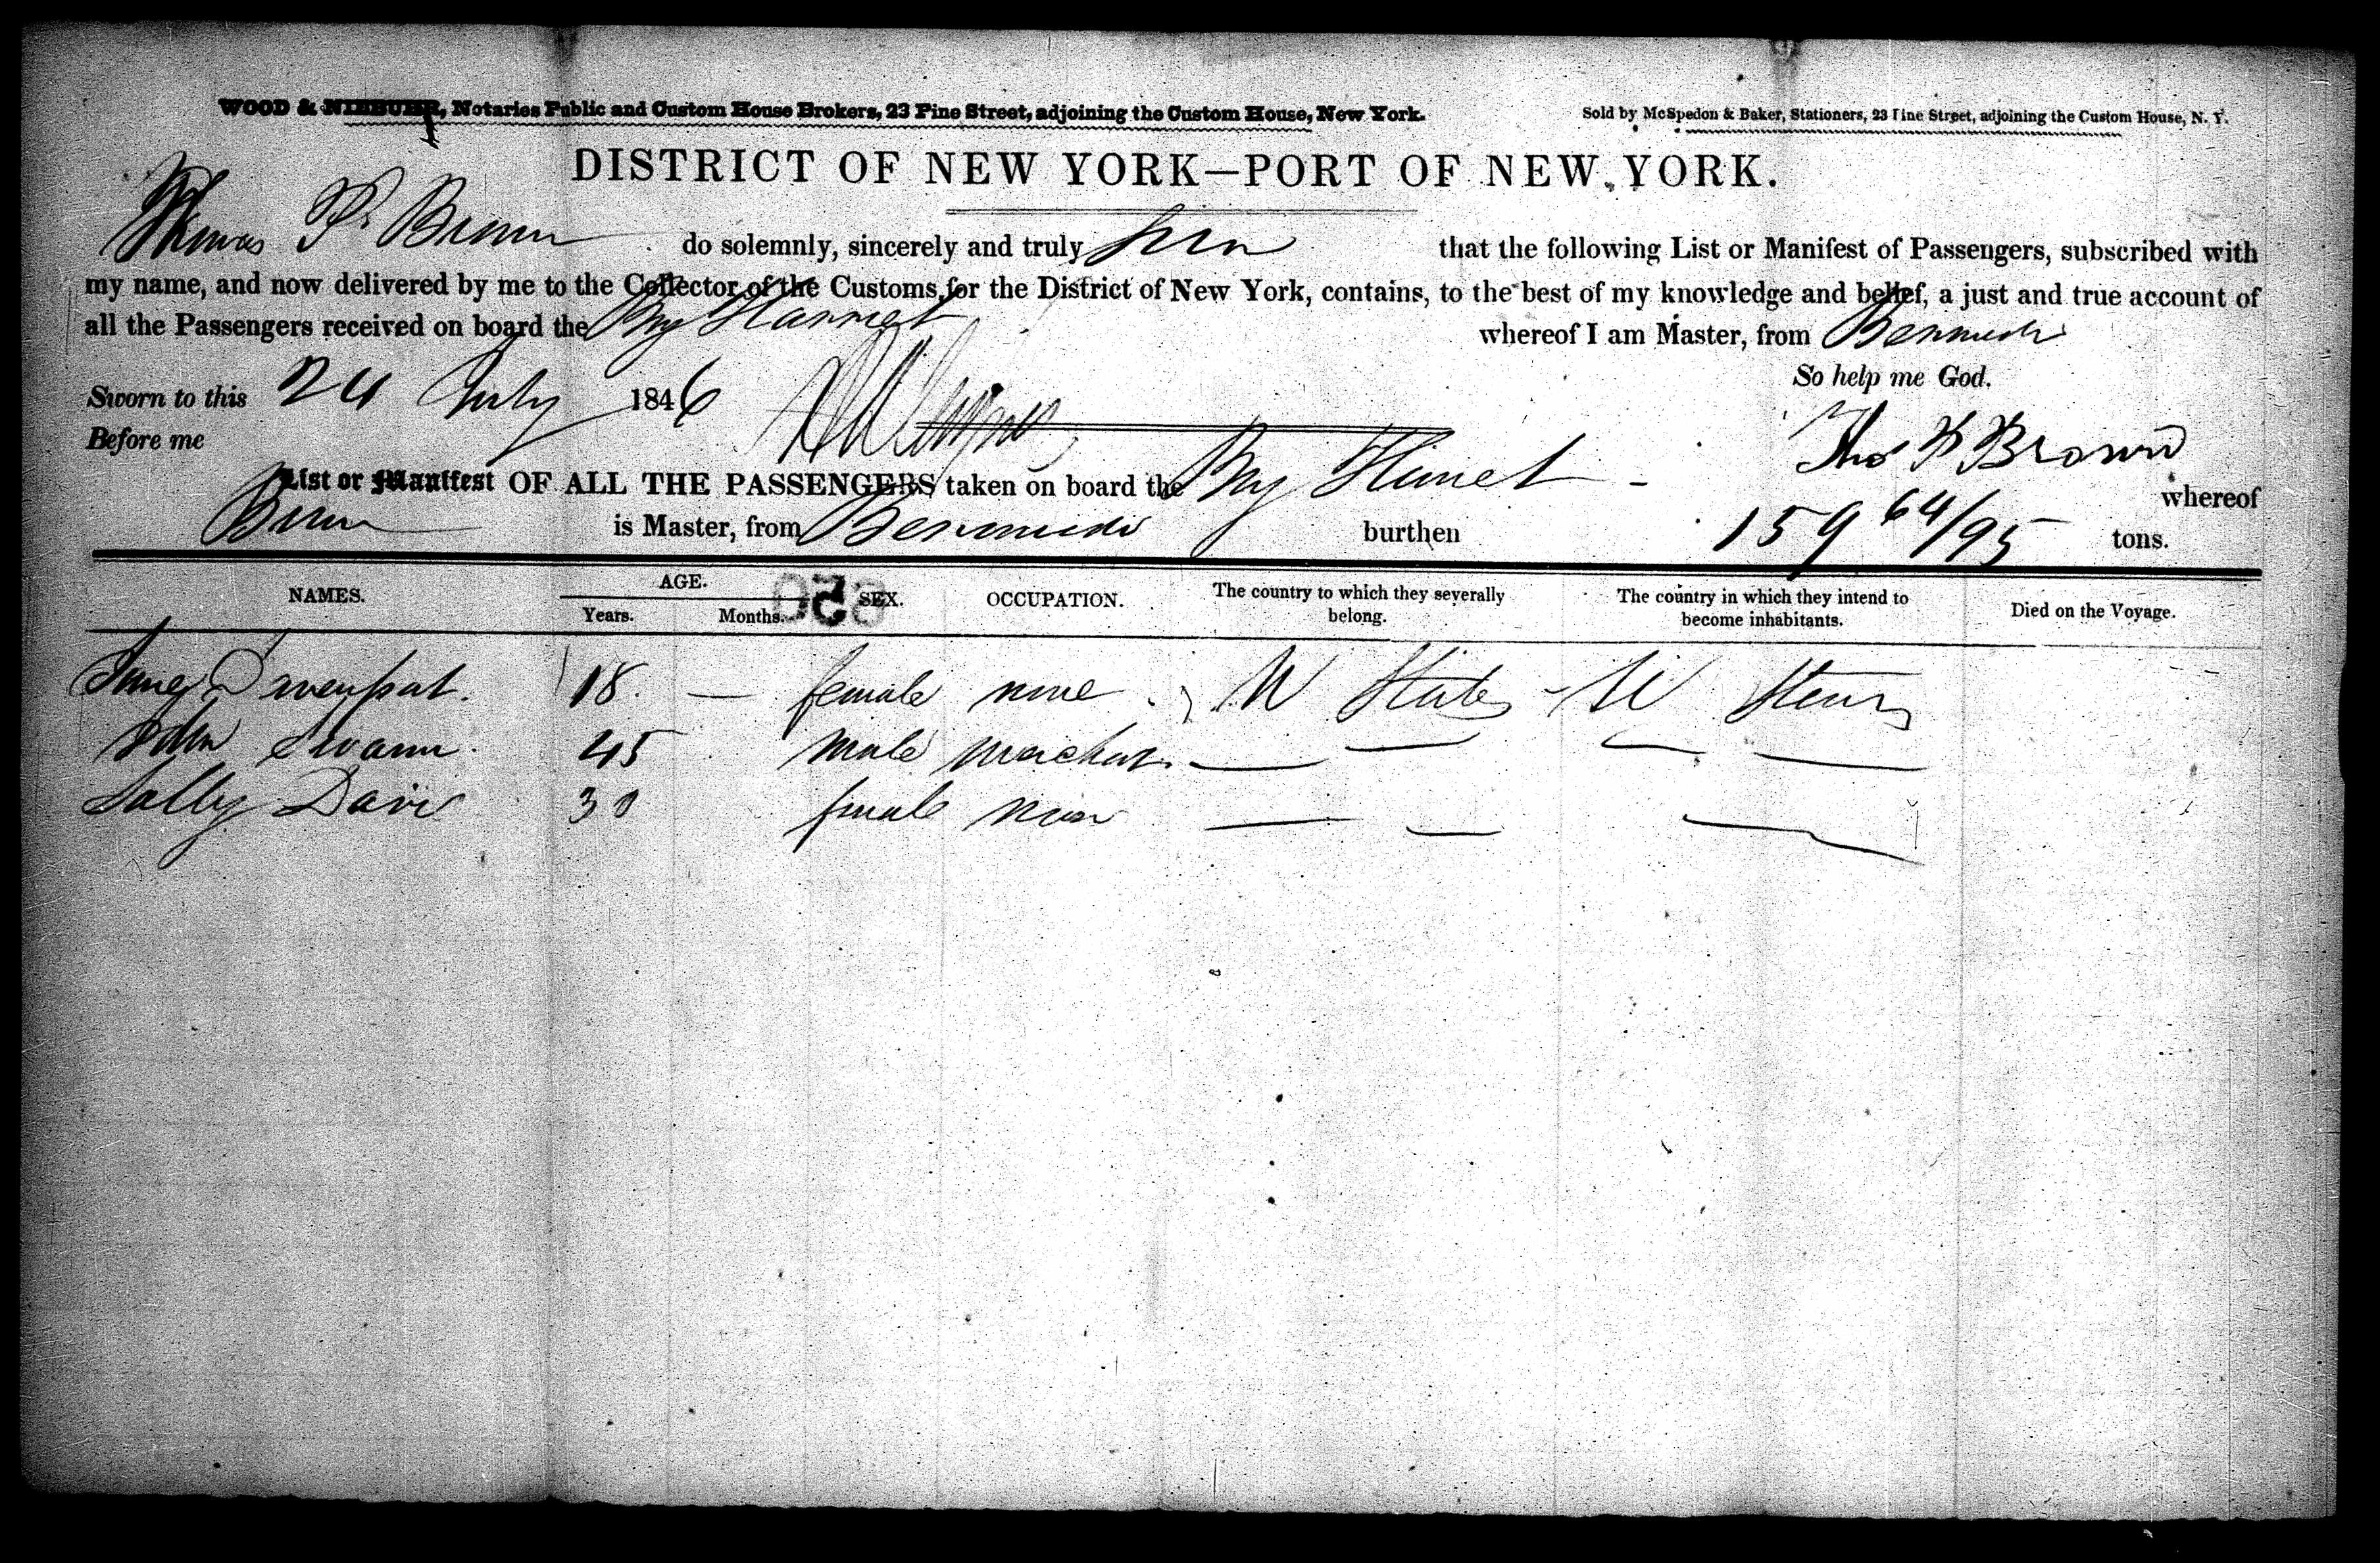 WOOD & NIEBUHR, Notaries Public and Custom House Brokers, 23 Pine Street, adjoining the Custom House, New York.
Sold by McSpedon & Baker, Stationers, 23 Pine Street, adjoining the Custom House, N. Y.
DISTRICT OF NEW YORK—PORT OF NEW YORK.
Thomas P. Brown do solemnly, sincerely and truly that the following List or Manifest of Passengers, subscribed with
my name, and now delivered by me to the Collector of the Customs for the District of New York, contains, to the best of my knowledge and belief, a just and true account of
all the Passengers received on board the Brig Harriet whereof I am Master, from Bermuda
So help me God.
Sworn to this 24 July 1846
Before me
Thos P Brown
List or Manifest OF ALL THE PASSENGERS taken on board the Brig whereof
Brown is Master, from Bermuda burthen 159 64/95 tons.
NAMES. AGE. SEX. OCCUPATION. The country to which they severally belong. The country in which they intend to become inhabitants. Died on the Voyage.
Years. Months.
650
Davenport. 18 — female none U States U States
John Swann 45 male — — — —
Sally Davis 30 female none — — —